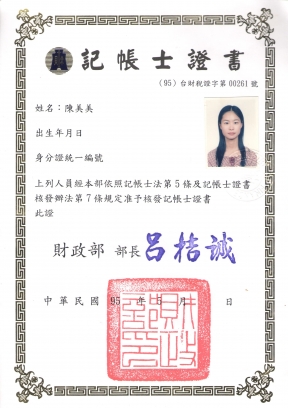 記帳士證書
（95）台財稅證字第00261號
姓名：陳美美
出生年月日
身分證統一編號
上列人員經本部依照記帳士法第5條及記帳士證書
核發辦法第7條規定准予核發記帳士證書
此證
財政部 部長 呂桔誠
中華民國 95 年 5 月 日